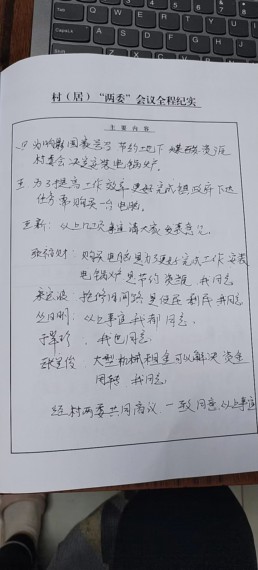 村（居）“两委”会议全程纪实
主要内容
为响应国家号召 节约地下 煤炭资源
村委会决定安装电锅炉。
为了提高工作效率 更好完成镇政府下达
任务需购买一台电脑。
新：以上几项事宜请大家发表意见。
购买电脑是为了更好完成工作 安装
电锅炉是节约资源 我同意
维修道间路是便民利民 我同意
以上事宜我都同意。
我也同意。
俊：大型机械租金可以解决资金
困难 我同意。
经村两委共同商议，一致同意以上事宜